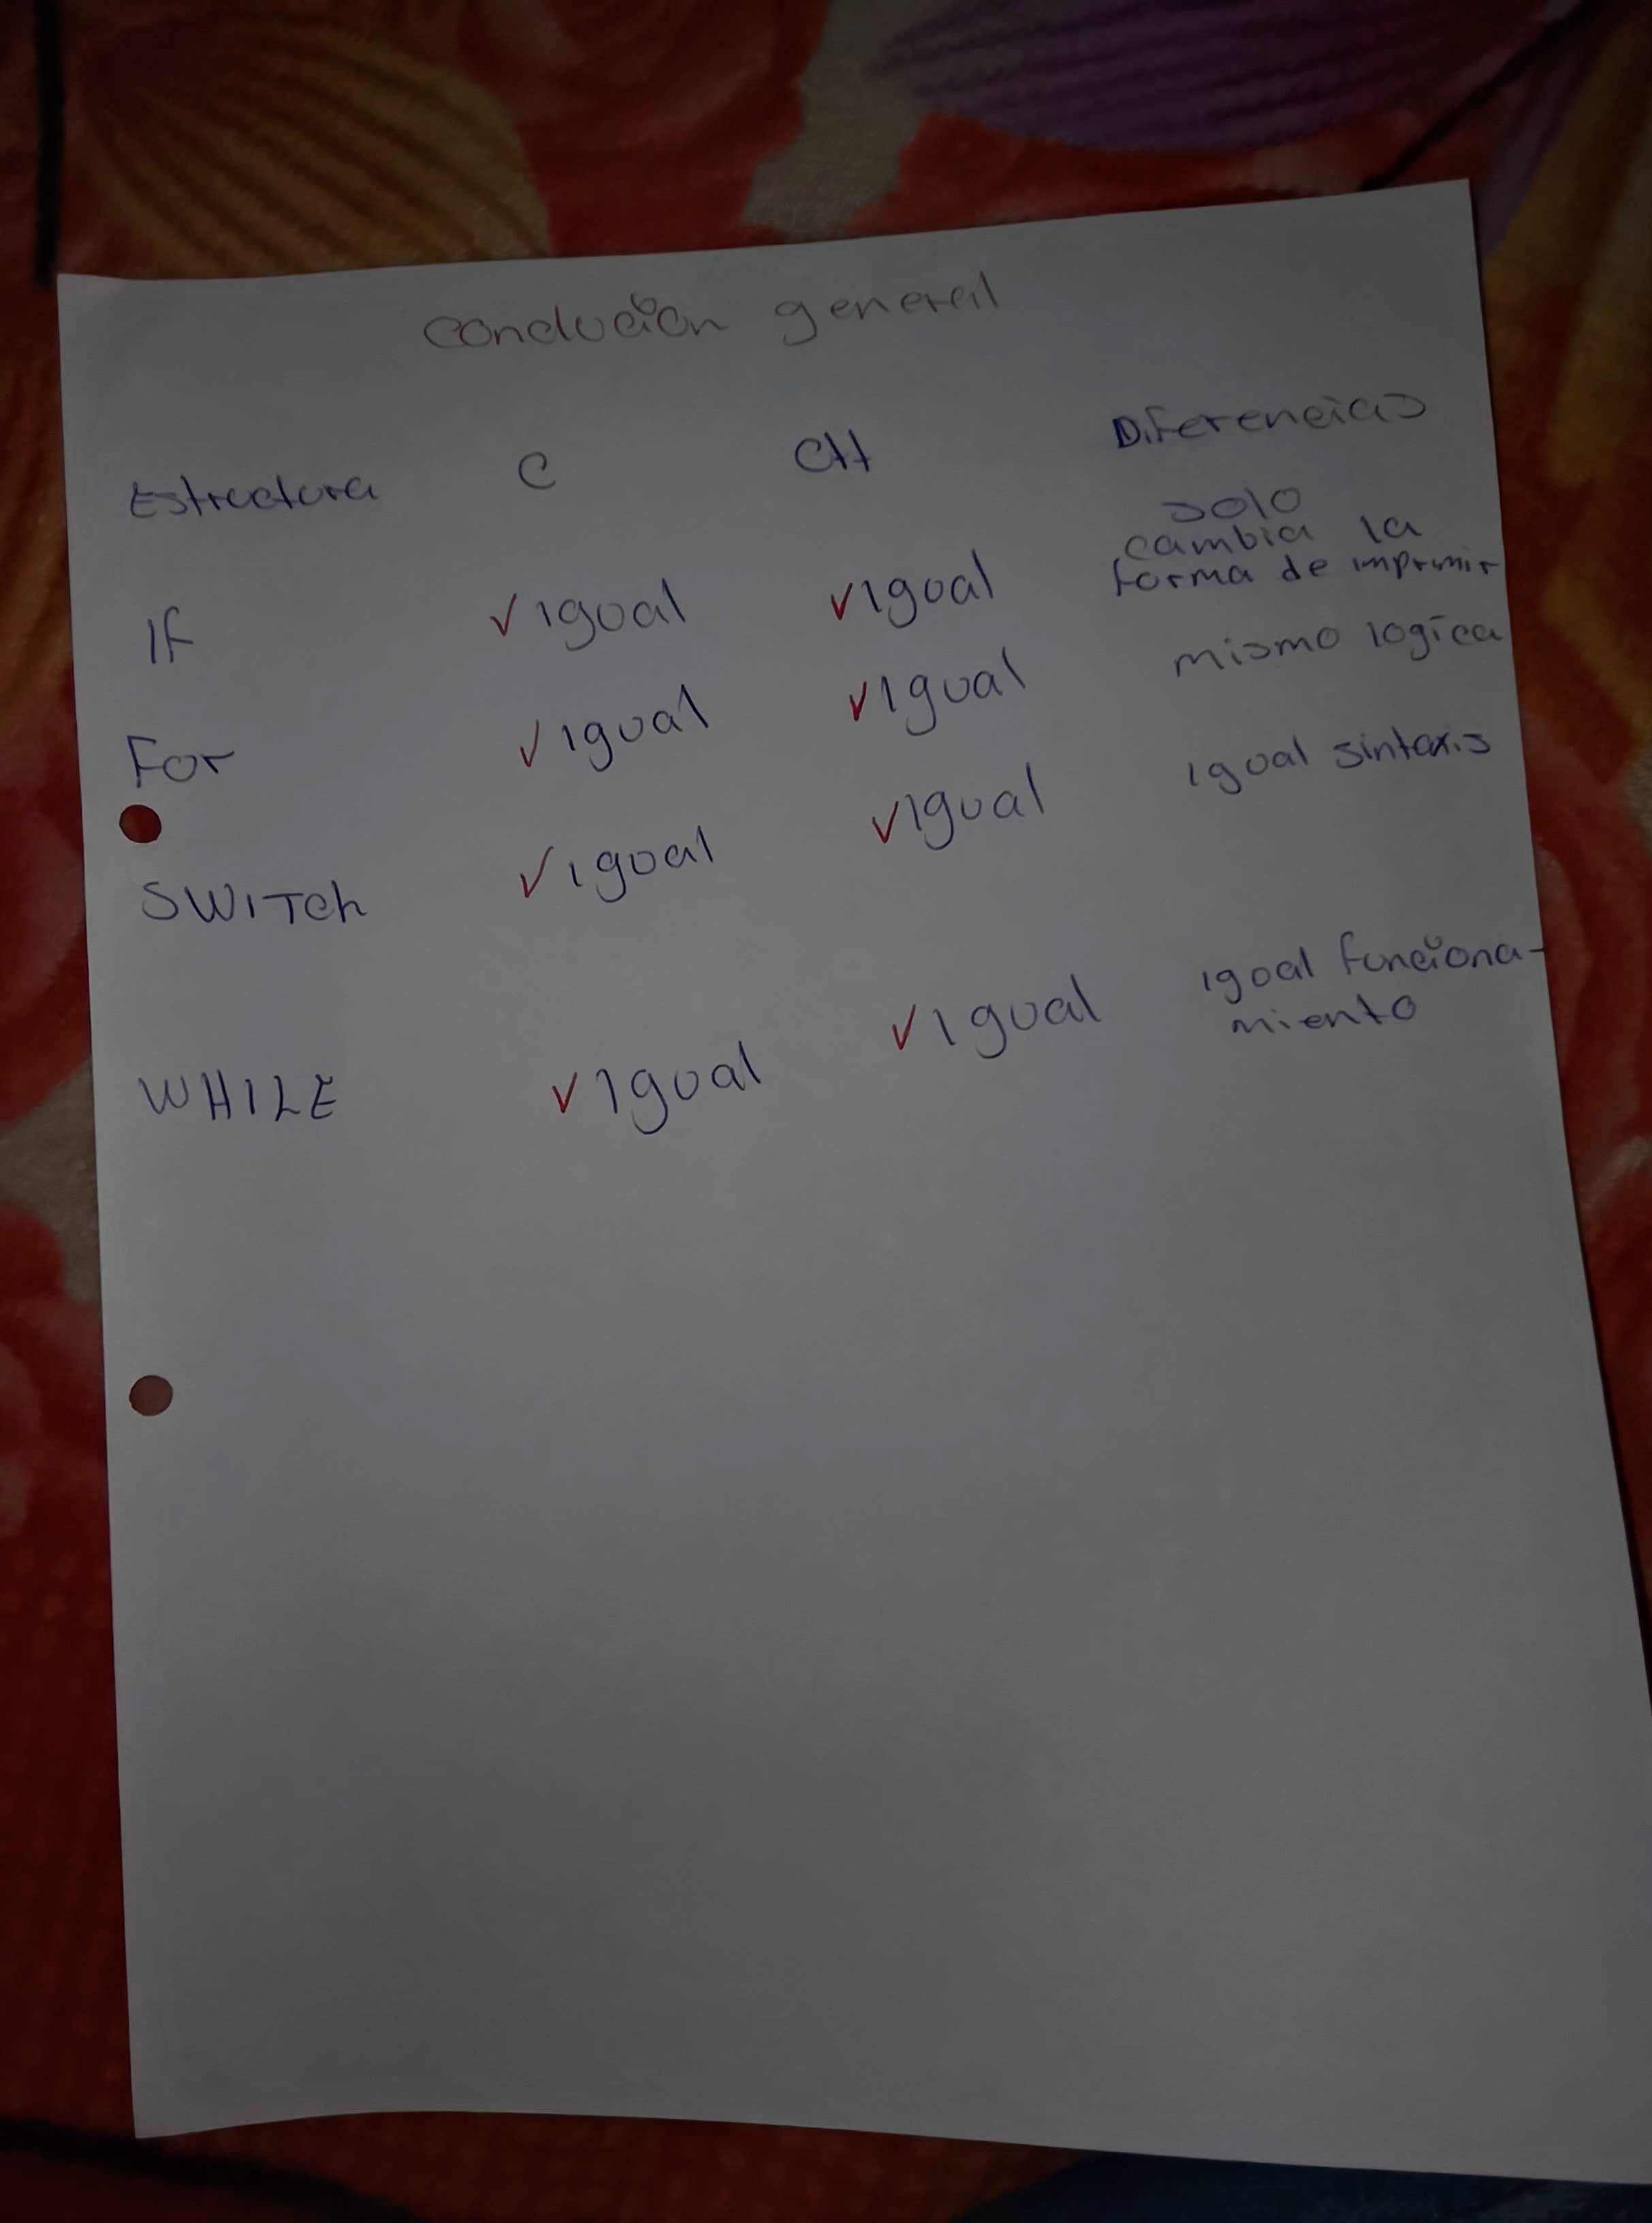 conclución general
Estructura C C++ Diferencias
If ✓ igual ✓ igual solo
cambia la
forma de imprimir
For ✓ igual ✓ igual mismo logica
SWITCh ✓ igual ✓ igual igual sintaxis
WHILE ✓ igual ✓ igual igual funciona-
miento